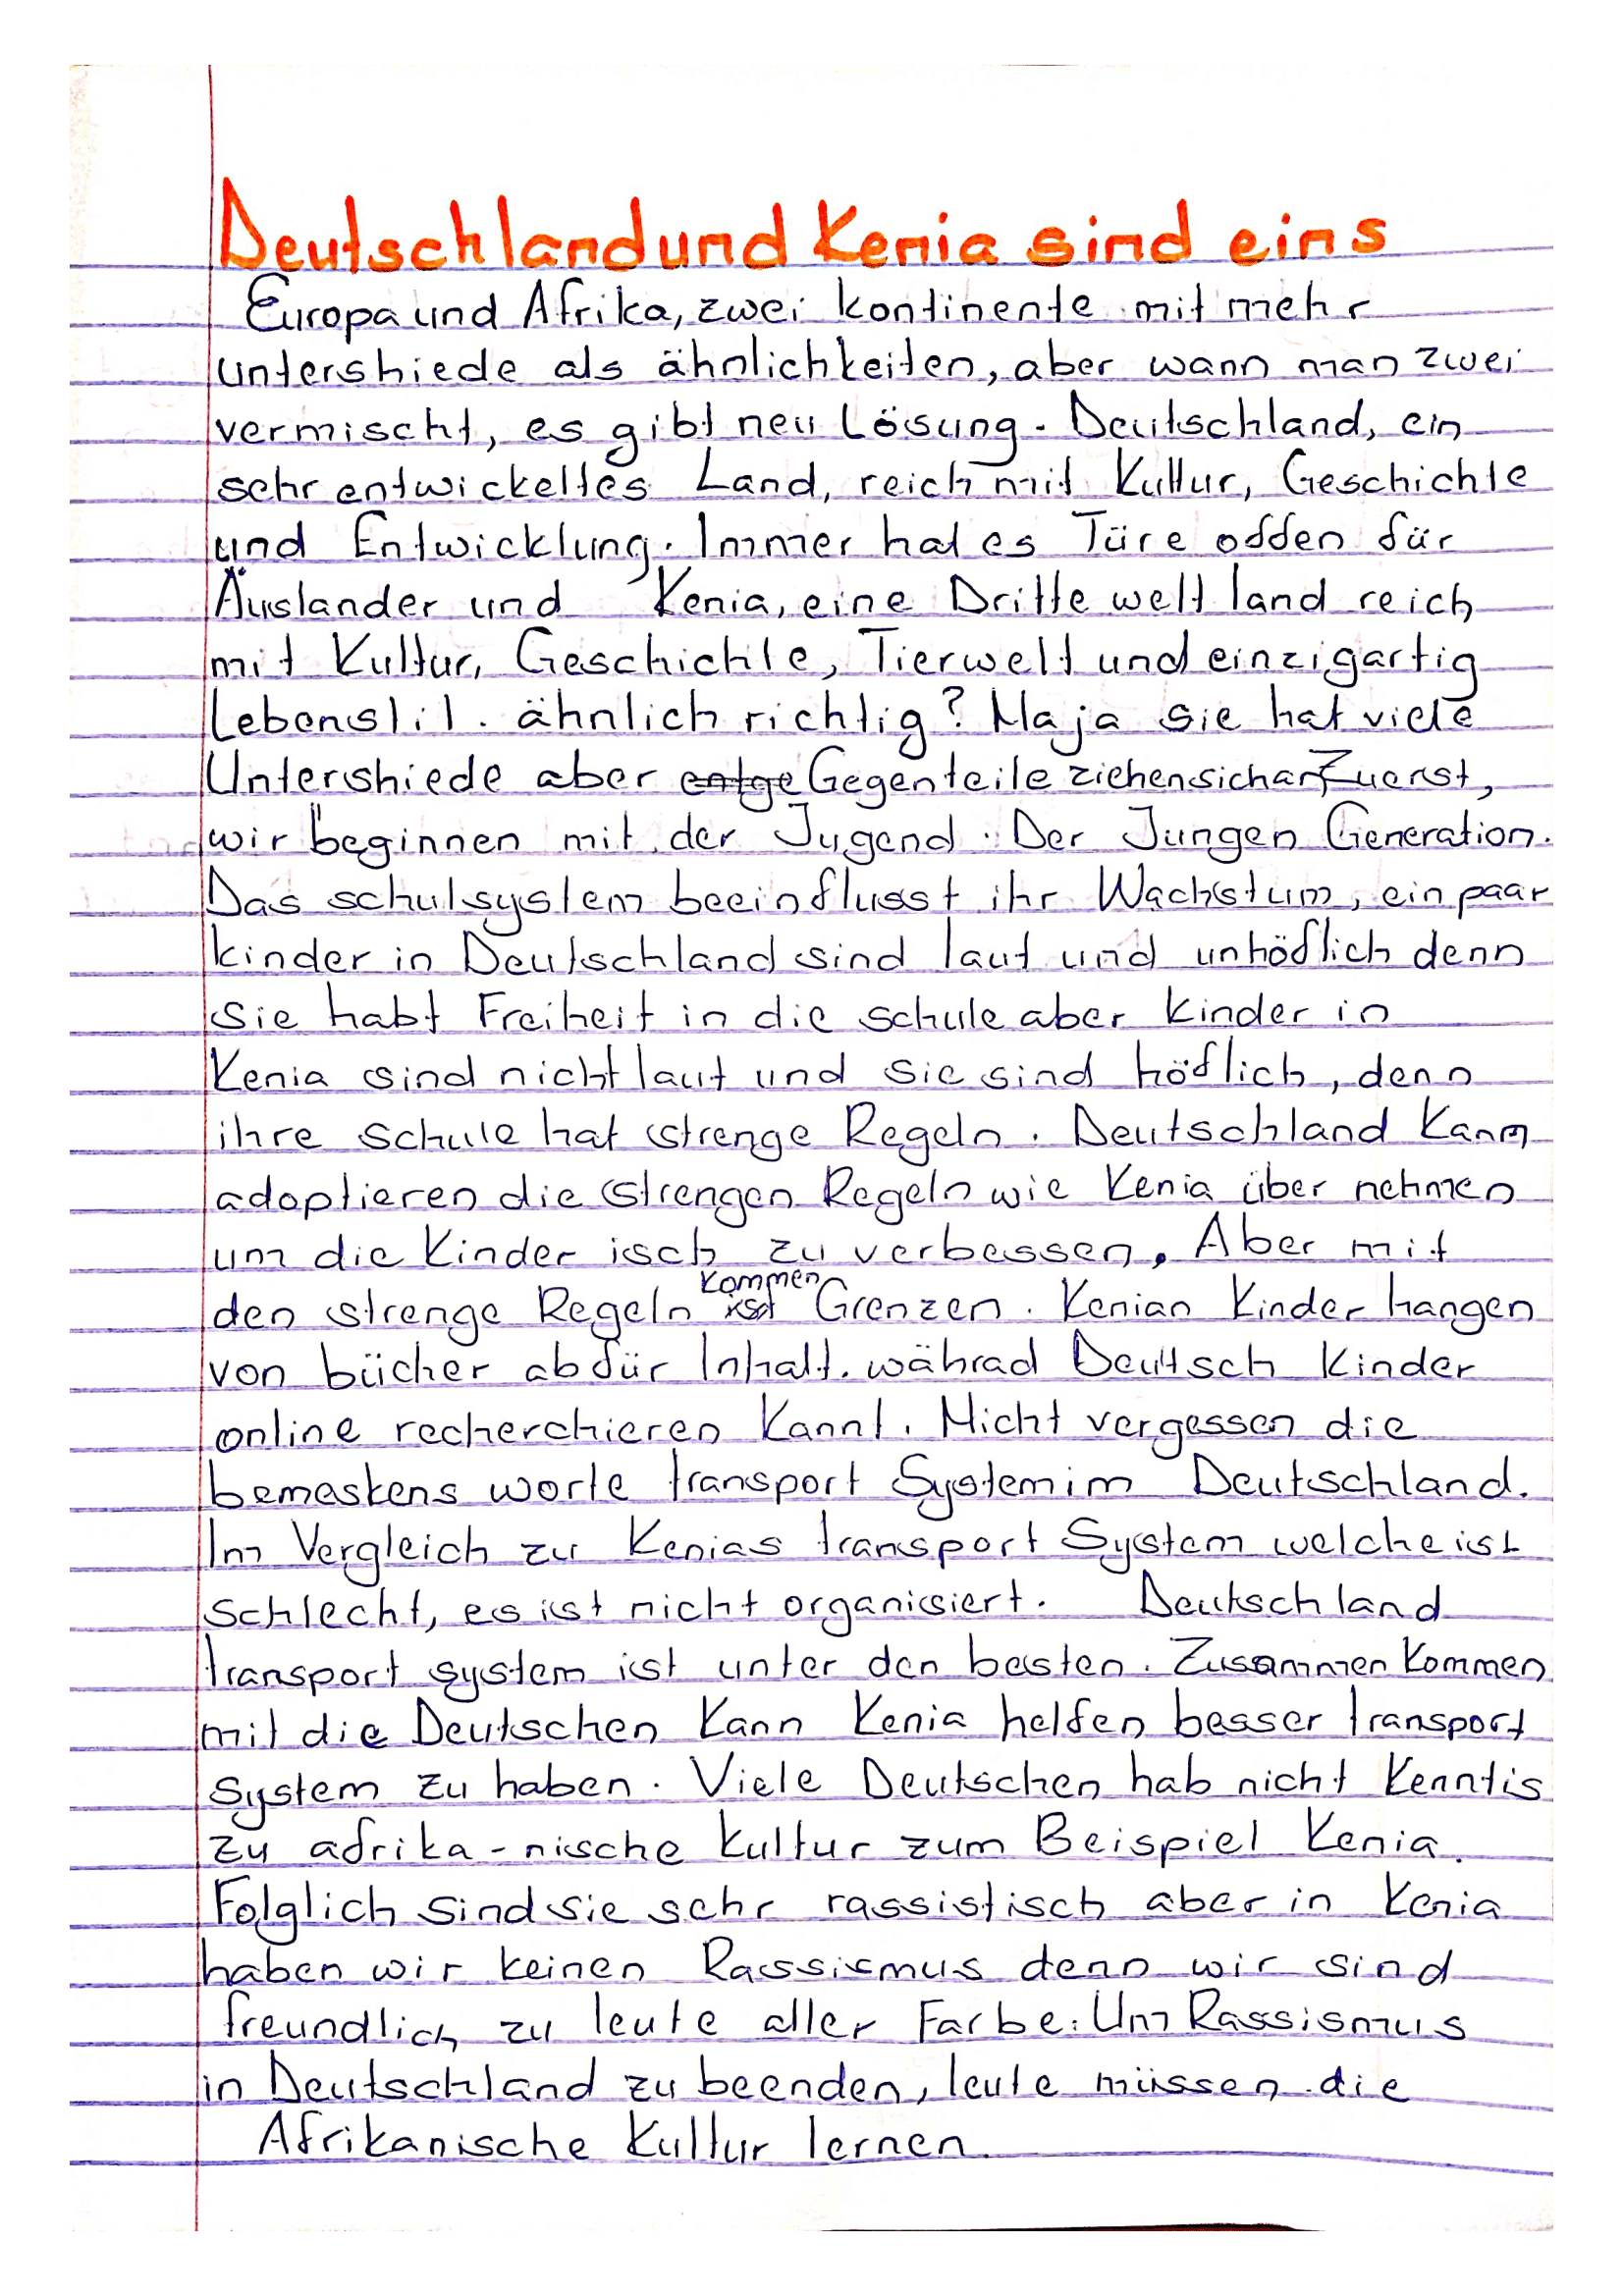 Deutschland und Kenia sind eins
Europa und Afrika, zwei kontinente mit mehr
untershiede als ähnlichkeiten, aber wann man zwei
vermischt, es gibt neu Lösung. Deutschland, ein
sehr entwickeltes Land, reich mit Kultur, Geschichte
und Entwicklung. Immer hat es Türe offen für
Äuslander und Kenia, eine Dritte welt land reich
mit Kultur, Geschichte, Tierwelt und einzigartig
Lebenslil. ähnlich richtig? Naja sie hat viele
Untershiede aber entge Gegenteile ziehen sich an Zuerst,
wir beginnen mit der Jugend. Der Jungen Generation.
Das schulsystem beeinflusst ihr Wachstum, ein paar
kinder in Deutschland sind laut und unhöflich denn
sie habt Freiheit in die schule aber kinder in
Kenia sind nicht laut und sie sind höflich, denn
ihre schule hat strenge Regeln. Deutschland Kann
adoptieren die strengen Regeln wie Kenia über nehmen
um die Kinder isch zu verbessen. Aber mit
den strenge Regeln kommen Grenzen. Kenian Kinder hangen
von bücher ab für Inhalt. währad Deutsch Kinder
online recherchieren Kannt. Nicht vergessen die
bemeskens worte transport System im Deutschland.
Im Vergleich zu Kenias transport System welche ist
schlecht, es ist nicht organisiert. Deutschland
transport system ist unter den besten. Zusammen Kommen
mit die Deutschen Kann Kenia helfen besser transport
system zu haben. Viele Deutschen hab nicht Kenntis
zu afrika-nische kultur zum Beispiel Kenia.
Folglich sind sie sehr rassistisch aber in Kenia
haben wir keinen Rassismus denn wir sind
freundlich zu leute aller Farbe. Um Rassismus
in Deutschland zu beenden, leute müssen die
Afrikanische Kultur lernen.